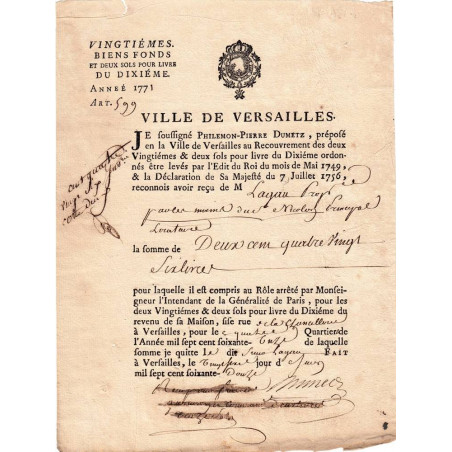 VINGTIÉMES.
BIENS FONDS
ET DEUX SOLS POUR LIVRE
DU DIXIÉME.
ANNÉE 1771
ART. 599
VILLE DE VERSAILLES.
JE soussigné PHILEMON-PIERRE DUMETZ, préposé
en la Ville de Versailles au Recouvrement des deux
Vingtiémes & deux sols pour livre du Dixiéme ordon-
nés être levés par l'Edit du Roi du mois de Mai 1749,
& la Déclaration de Sa Majesté du 7 Juillet 1756,
reconnois avoir reçu de M Layau
par les mains du Sr Nicolas Principal
Locataire
la somme de Deux cent quatre Vingt
Six livres
pour laquelle il est compris au Rôle arrêté par Monsei-
gneur l'Intendant de la Généralité de Paris, pour les
deux Vingtiémes & deux sols pour livre du Dixiéme du
revenu de sa Maison, sise rue de la Chancellerie
à Versailles, pour le quatre Quartier de
l'Année mil sept cent soixante- Onze de laquelle
somme je quitte le dit Sieur Layau FAIT
à Versailles, le jour d
mil sept cent soixante- Douze